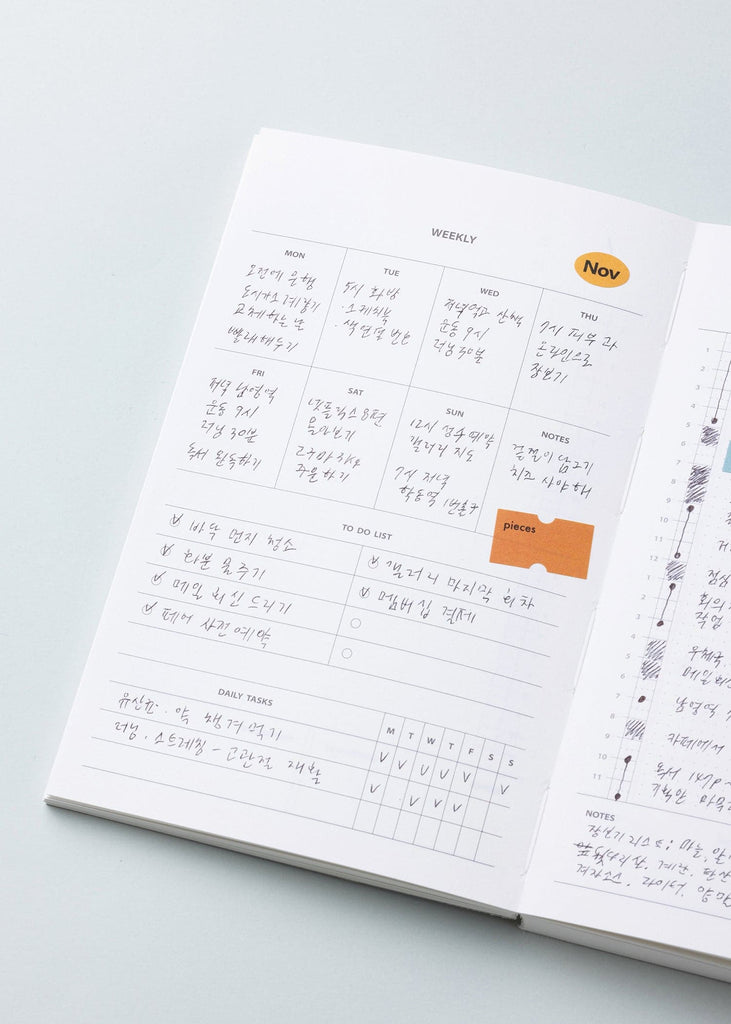 WEEKLY
Nov
MON
오전에 은행
도시가스
교체하는 날
빨래해두기
TUE
5시 화방
· 스케치북
· 색연필
WED
저녁 산책
운동 9시
러닝 30분
THU
7시 피부과
온라인으로
장보기
FRI
저녁 남영역
운동 9시
러닝 30분
독서 완독하기
SAT
넷플릭스 8편
몰아보기
고구마
주문하기
SUN
12시 성수 예약
갤러리 지도
7시 저녁
학동역 1번출구
NOTES
겉절이 담그기
치즈 사야 해
pieces
TO DO LIST
바닥 먼지 청소
화분 물주기
메일 회신 드리기
페어 사전예약
갤러리 마지막 회차
멤버십 결제
DAILY TASKS
유산균 · 약 챙겨먹기
러닝 · 스트레칭 – 고관절 재활
M T W T F S S
1
4
5
6
7
8
9
10
11
12
1
2
3
4
5
6
7
8
9
10
11
점심
회의
작업
우체국
메일
남영역
카페에서
독서
기획안
NOTES
장보기 리스트: 마늘,
계란,